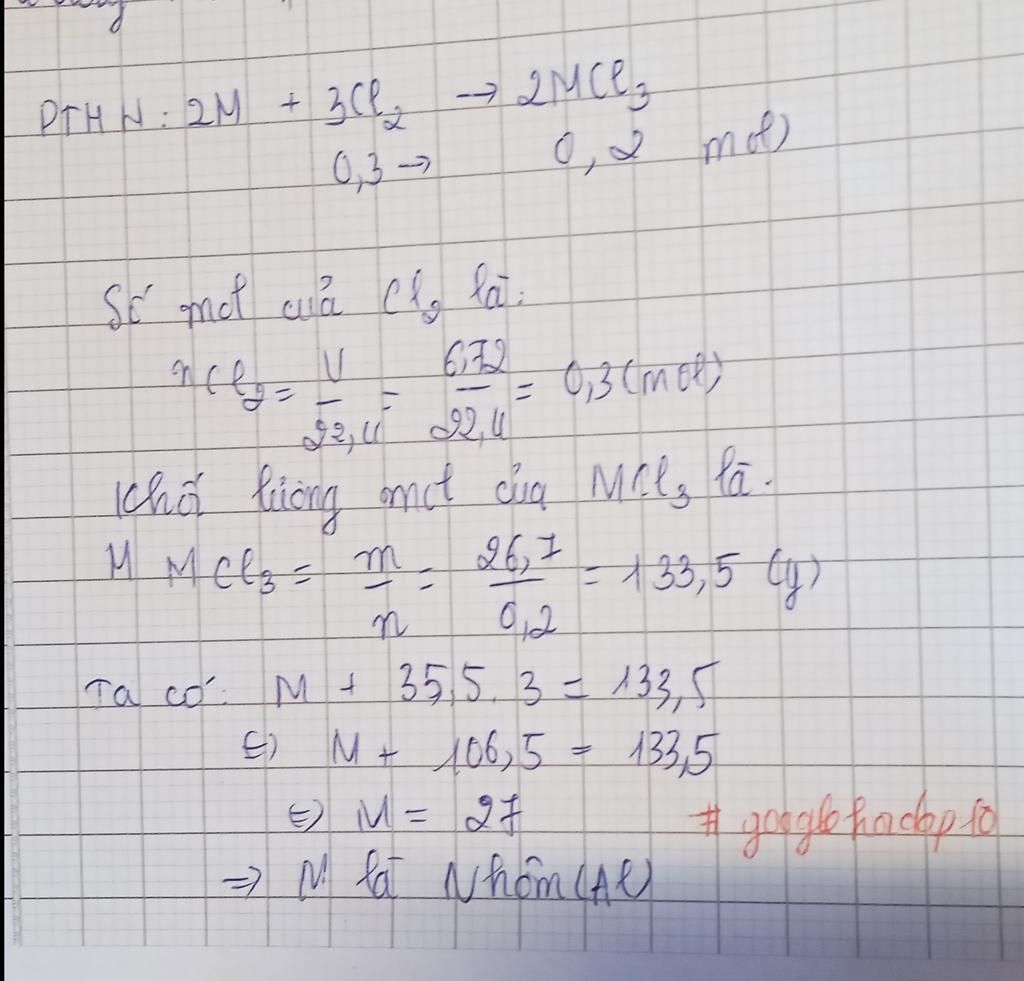 PTHH: 2M + 3Cl2 → 2MCl3
0,3 → 0,2 mol)
Số mol của Cl2 là:
nCl2 = V/22,4 = 6,72/22,4 = 0,3 (mol)
Khối lượng mol của MCl3 là.
M MCl3 = m/n = 26,7/0,2 = 133,5 (g)
Ta có: M + 35,5. 3 = 133,5
⇔ M + 106,5 = 133,5
⇔ M = 27
⇒ M là Nhôm (Al)